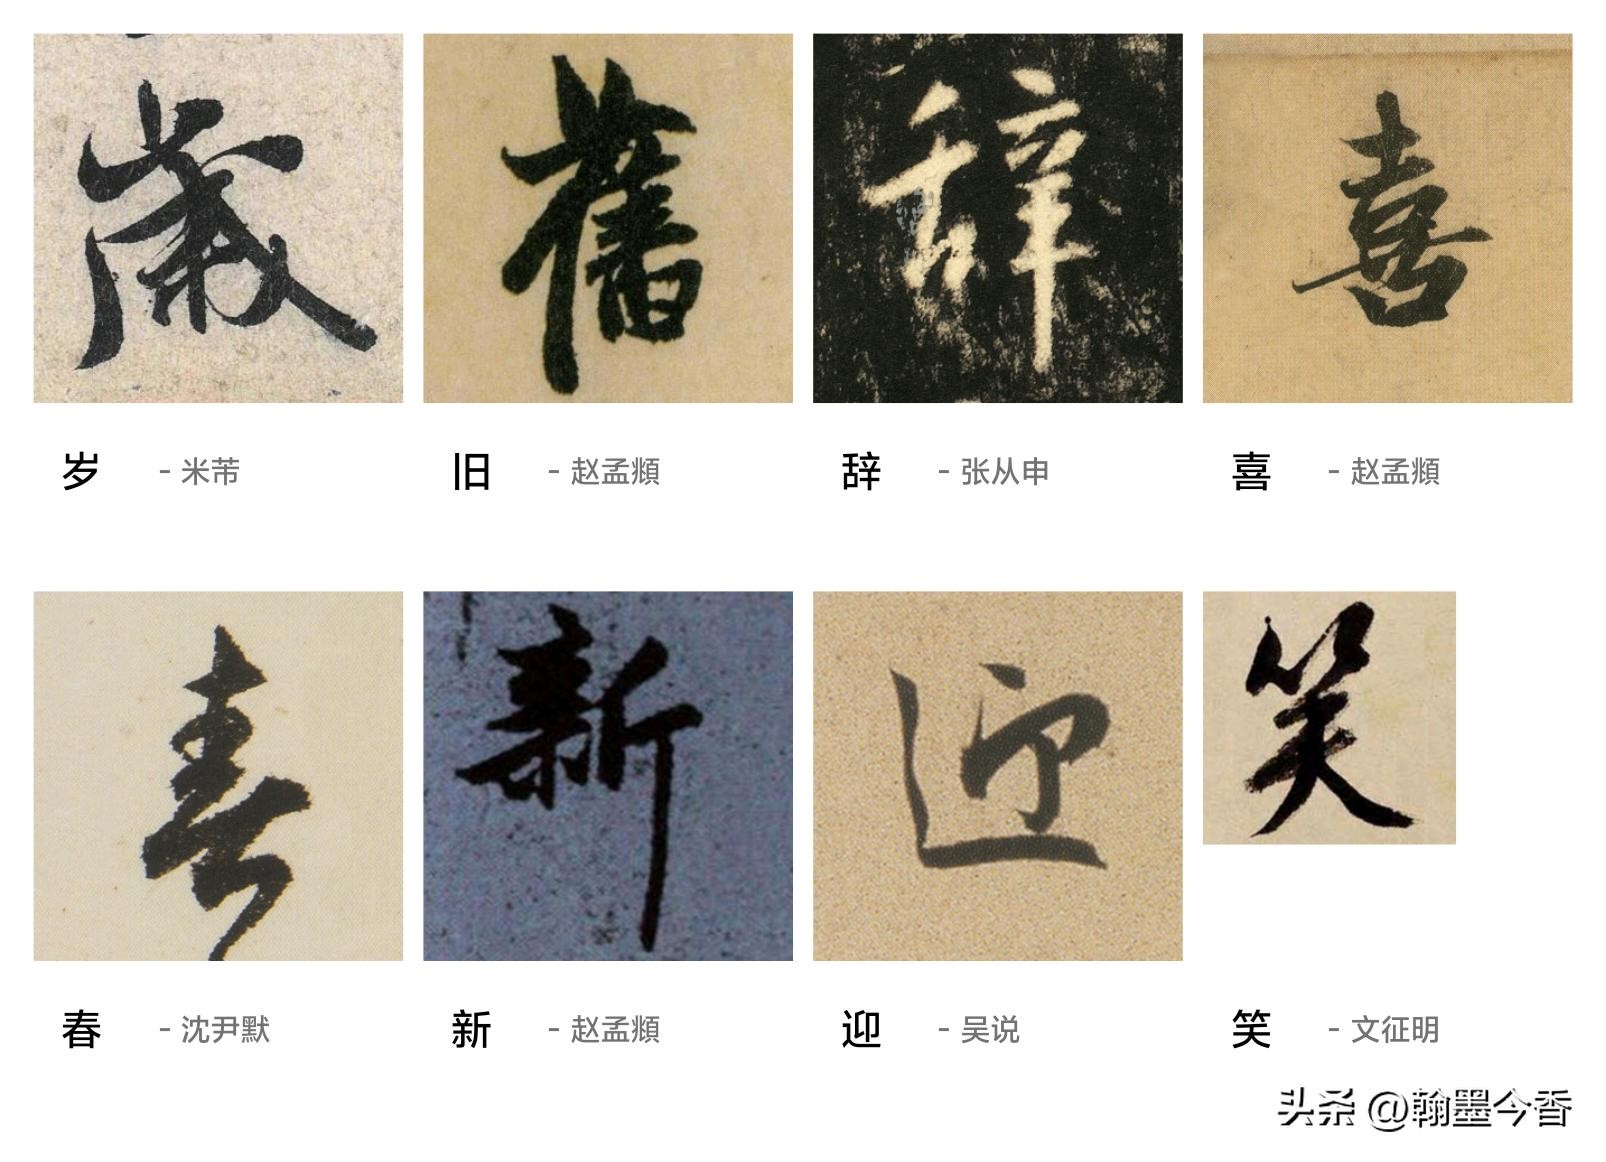 歲 舊 辭 喜
岁 - 米芾 旧 - 赵孟頫 辞 - 张从申 喜 - 赵孟頫
春 新 迎 笑
春 - 沈尹默 新 - 赵孟頫 迎 - 吴说 笑 - 文征明
头条 @翰墨今香